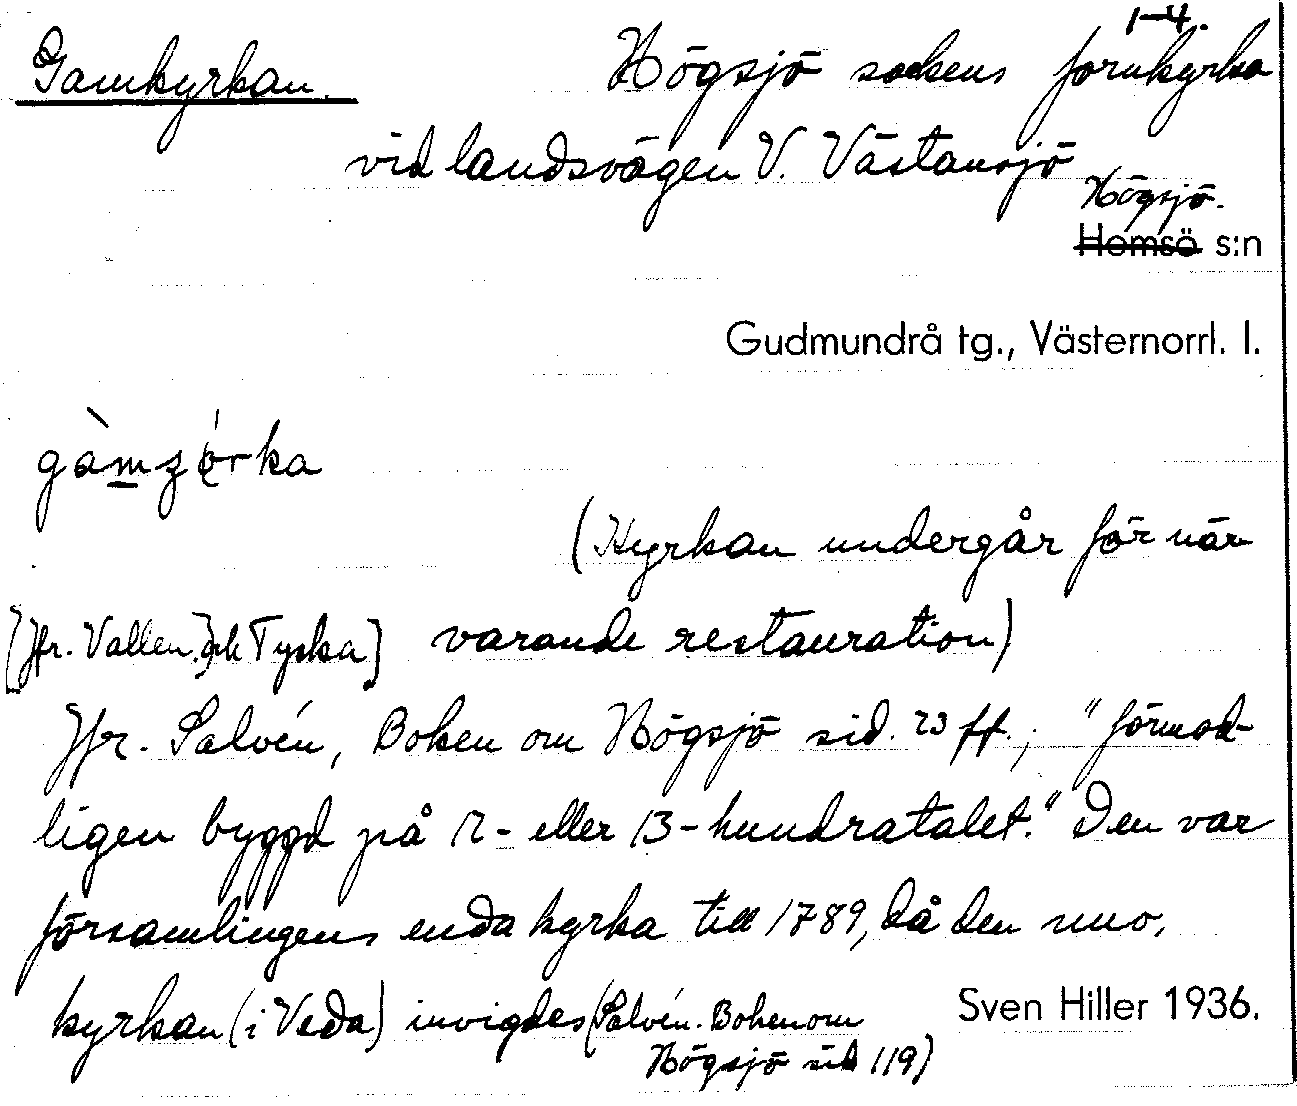 1-4.
Gamkyrkan. Högsjö sockens fornkyrka
vid landsvägen V. Västansjö
Högsjö.
Hemsö s:n
Gudmundrå tg., Västernorrl. l.
gàmʒó̜rka
(Kyrkan undergår för när-
[Jfr. Vallen, och Tyska] varande restauration)
Jfr. Salvén, Boken om Högsjö sid. 23 ff.; "förmod-
ligen byggd på 12- eller 13-hundratalet." Den var
församlingens enda kyrka till 1789, då den nuv.
kyrkan (i Veda) invigdes (Salvén. Boken om
Högsjö sid 119)
Sven Hiller 1936.